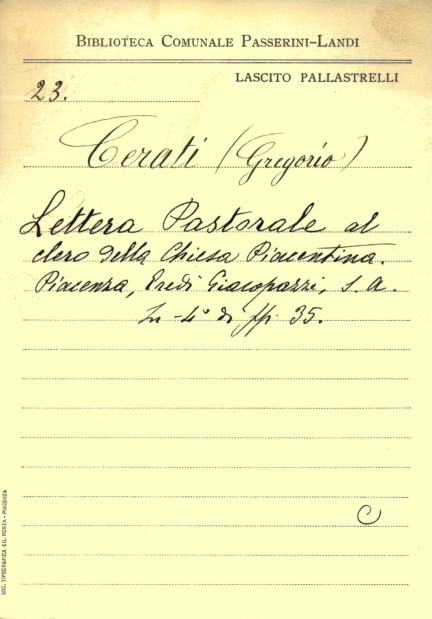 BIBLIOTECA COMUNALE PASSERINI-LANDI
LASCITO PALLASTRELLI
23.
Cerati (Gregorio)
Lettera Pastorale al
clero della Chiesa Piacentina.
Piacenza, Eredi Giacopazzi, s. a.
In-4° di pp. 35.
C
SOC. TIPOGRAFICA ED. PORTA - PIACENZA